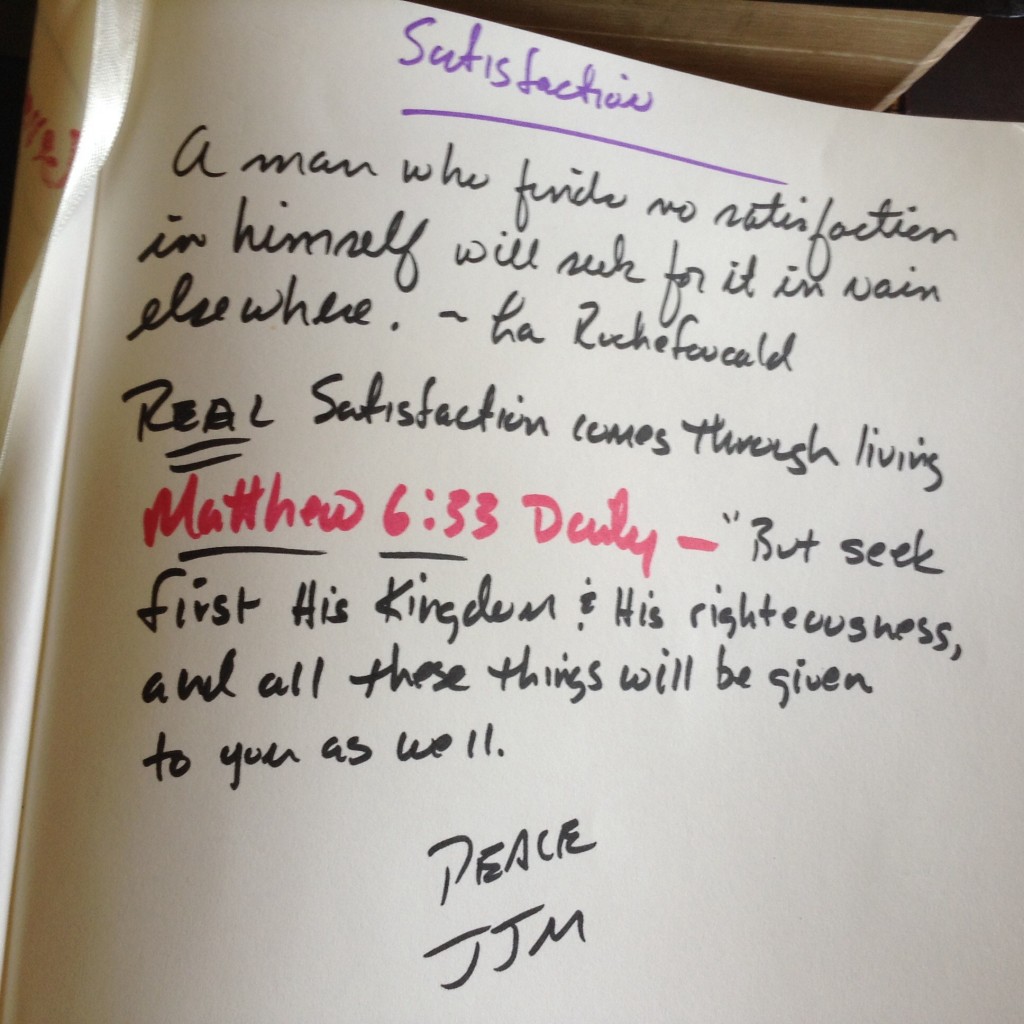 Satisfaction
A man who finds no satisfaction
in himself will seek for it in vain
elsewhere. ~ La Rochefoucald
REAL Satisfaction comes through living
Matthew 6:33 Daily - "But seek
first His Kingdom & His righteousness,
and all these things will be given
to you as well.
PEACE
JJM